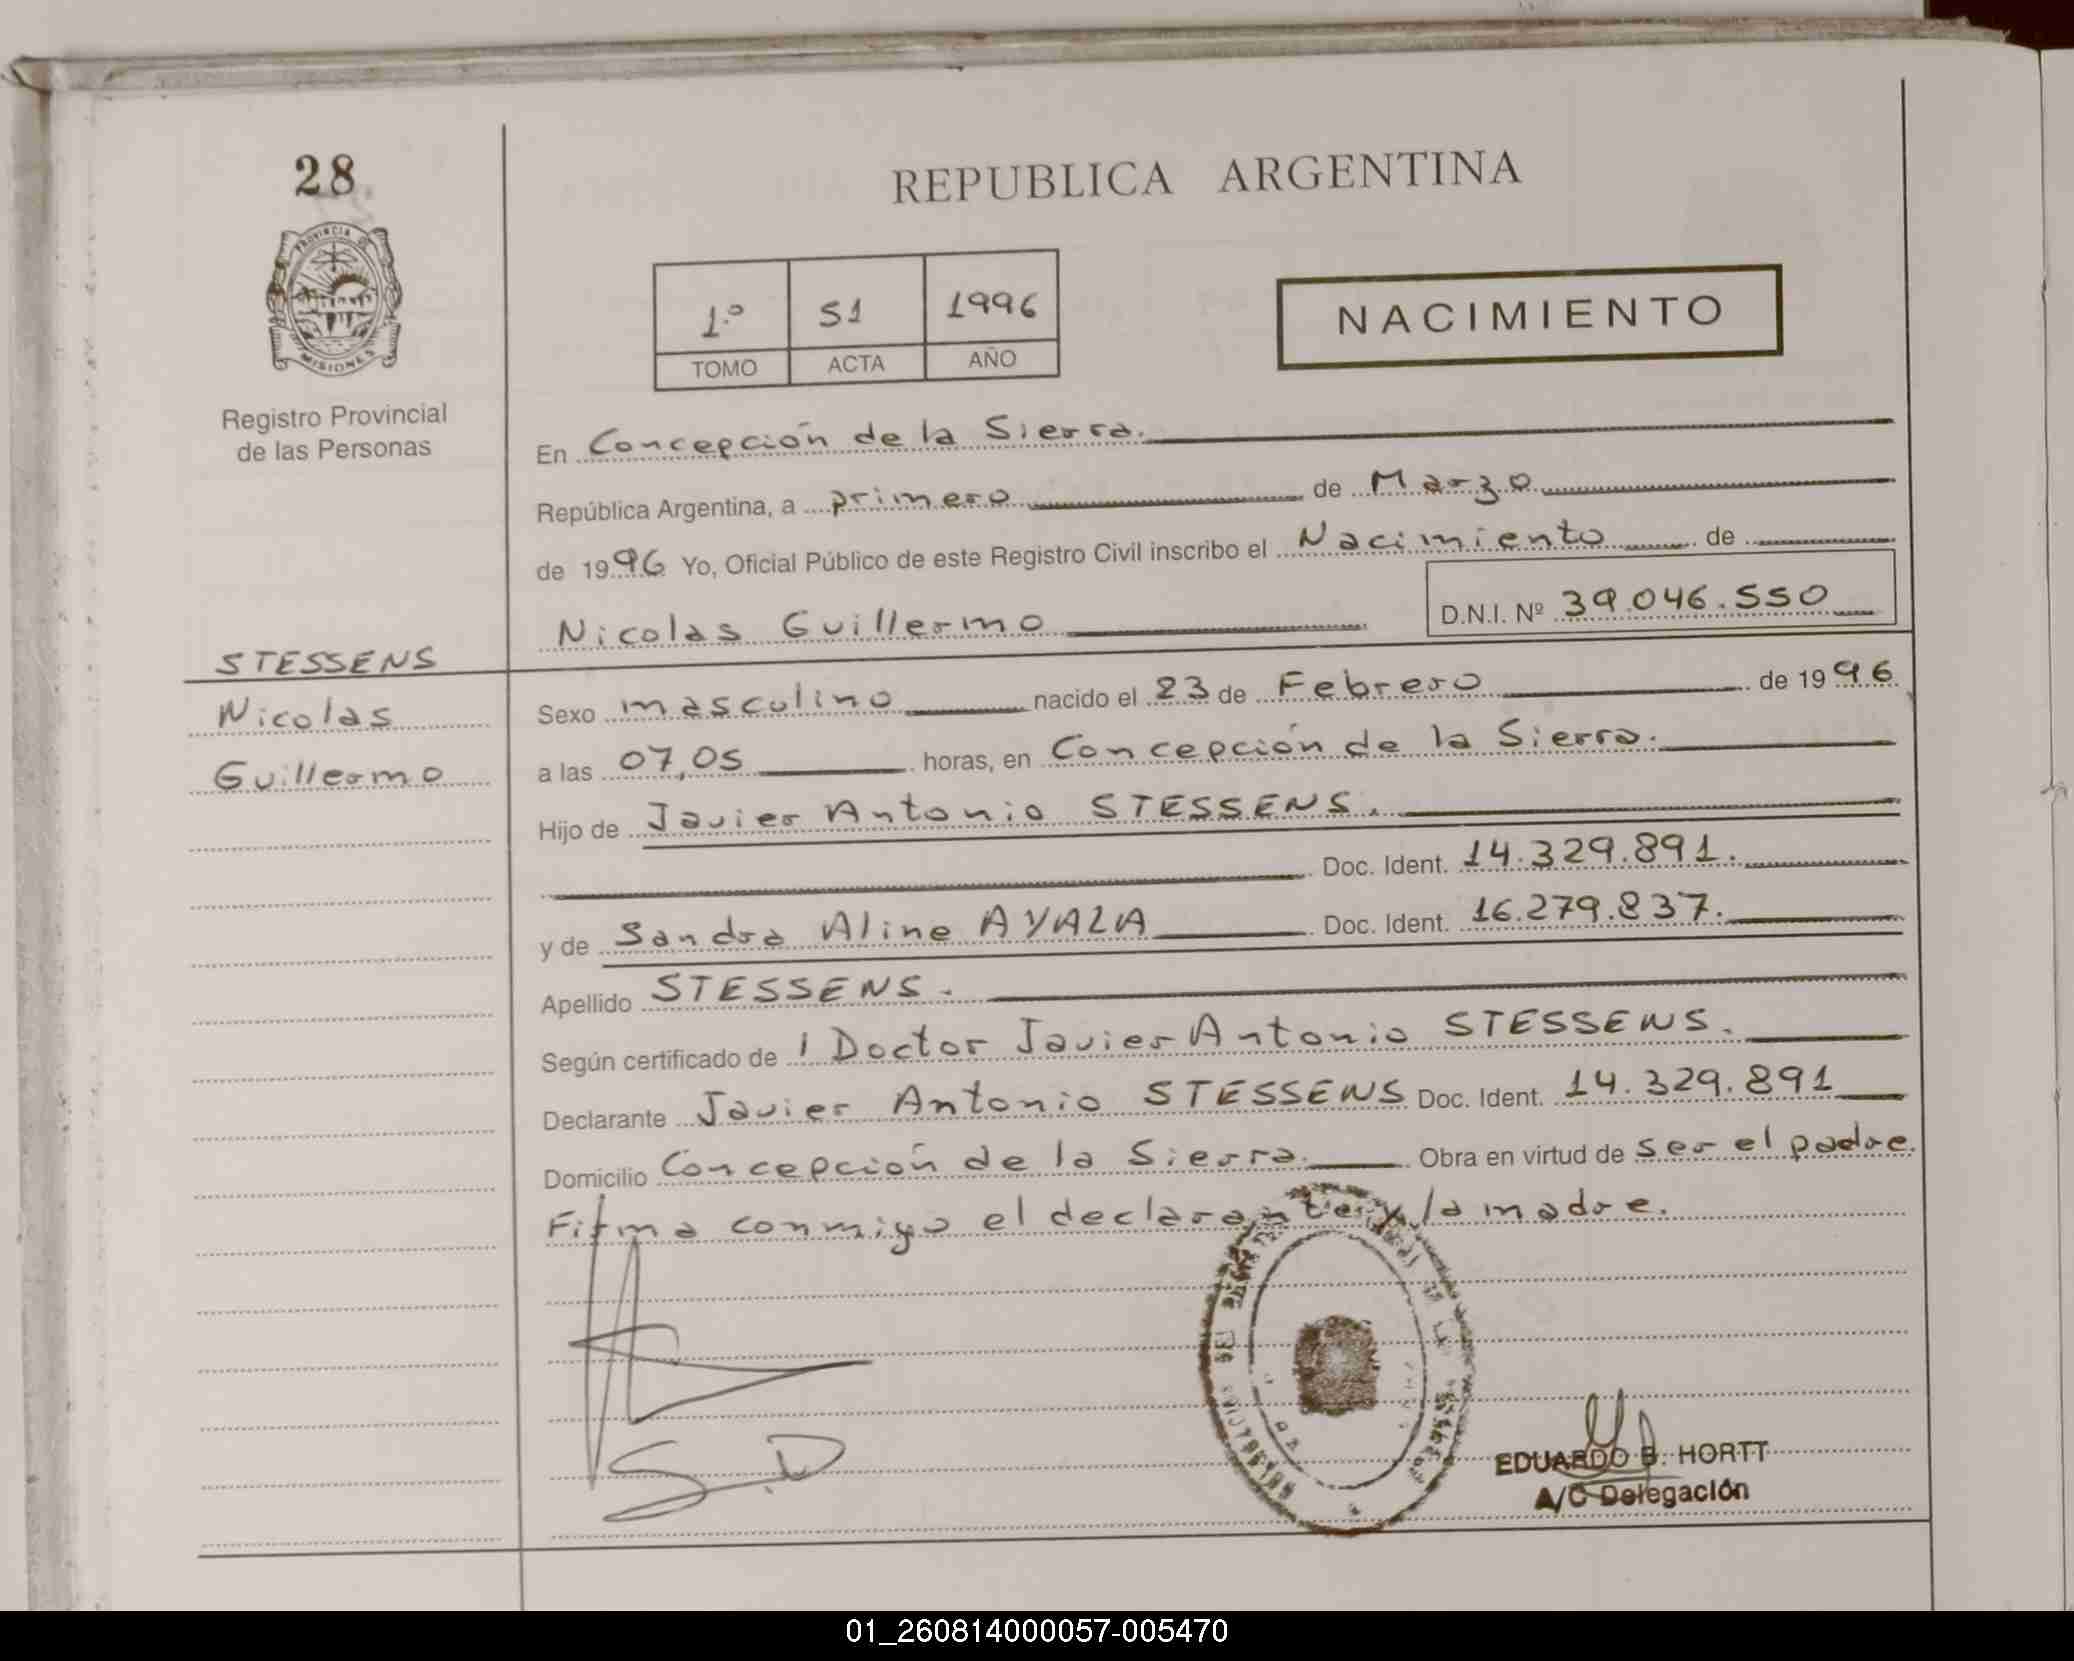 28
REPUBLICA ARGENTINA
PROVINCIA DE
MISIONES
Registro Provincial
de las Personas
1º 51 1996
TOMO ACTA AÑO
NACIMIENTO
En Concepción de la Sierra.
República Argentina, a primero de Marzo
de 1996 Yo, Oficial Público de este Registro Civil inscribo el Nacimiento de
Nicolas Guillermo D.N.I. Nº 39.046.550
STESSENS
Nicolas
Guillermo
Sexo masculino nacido el 23 de Febrero de 1996
a las 07,05 horas, en Concepción de la Sierra.
Hijo de Javier Antonio STESSENS.
Doc. Ident. 14.329.891.
y de Sandra Aline AYALA Doc. Ident. 16.279.837.
Apellido STESSENS.
Según certificado de l Doctor Javier Antonio STESSENS.
Declarante Javier Antonio STESSENS Doc. Ident. 14.329.891
Domicilio Concepción de la Sierra. Obra en virtud de ser el padre.
Firma conmigo el declarante y la madre.
EDUARDO B. HORTT
A/C Delegación
01_260814000057-005470